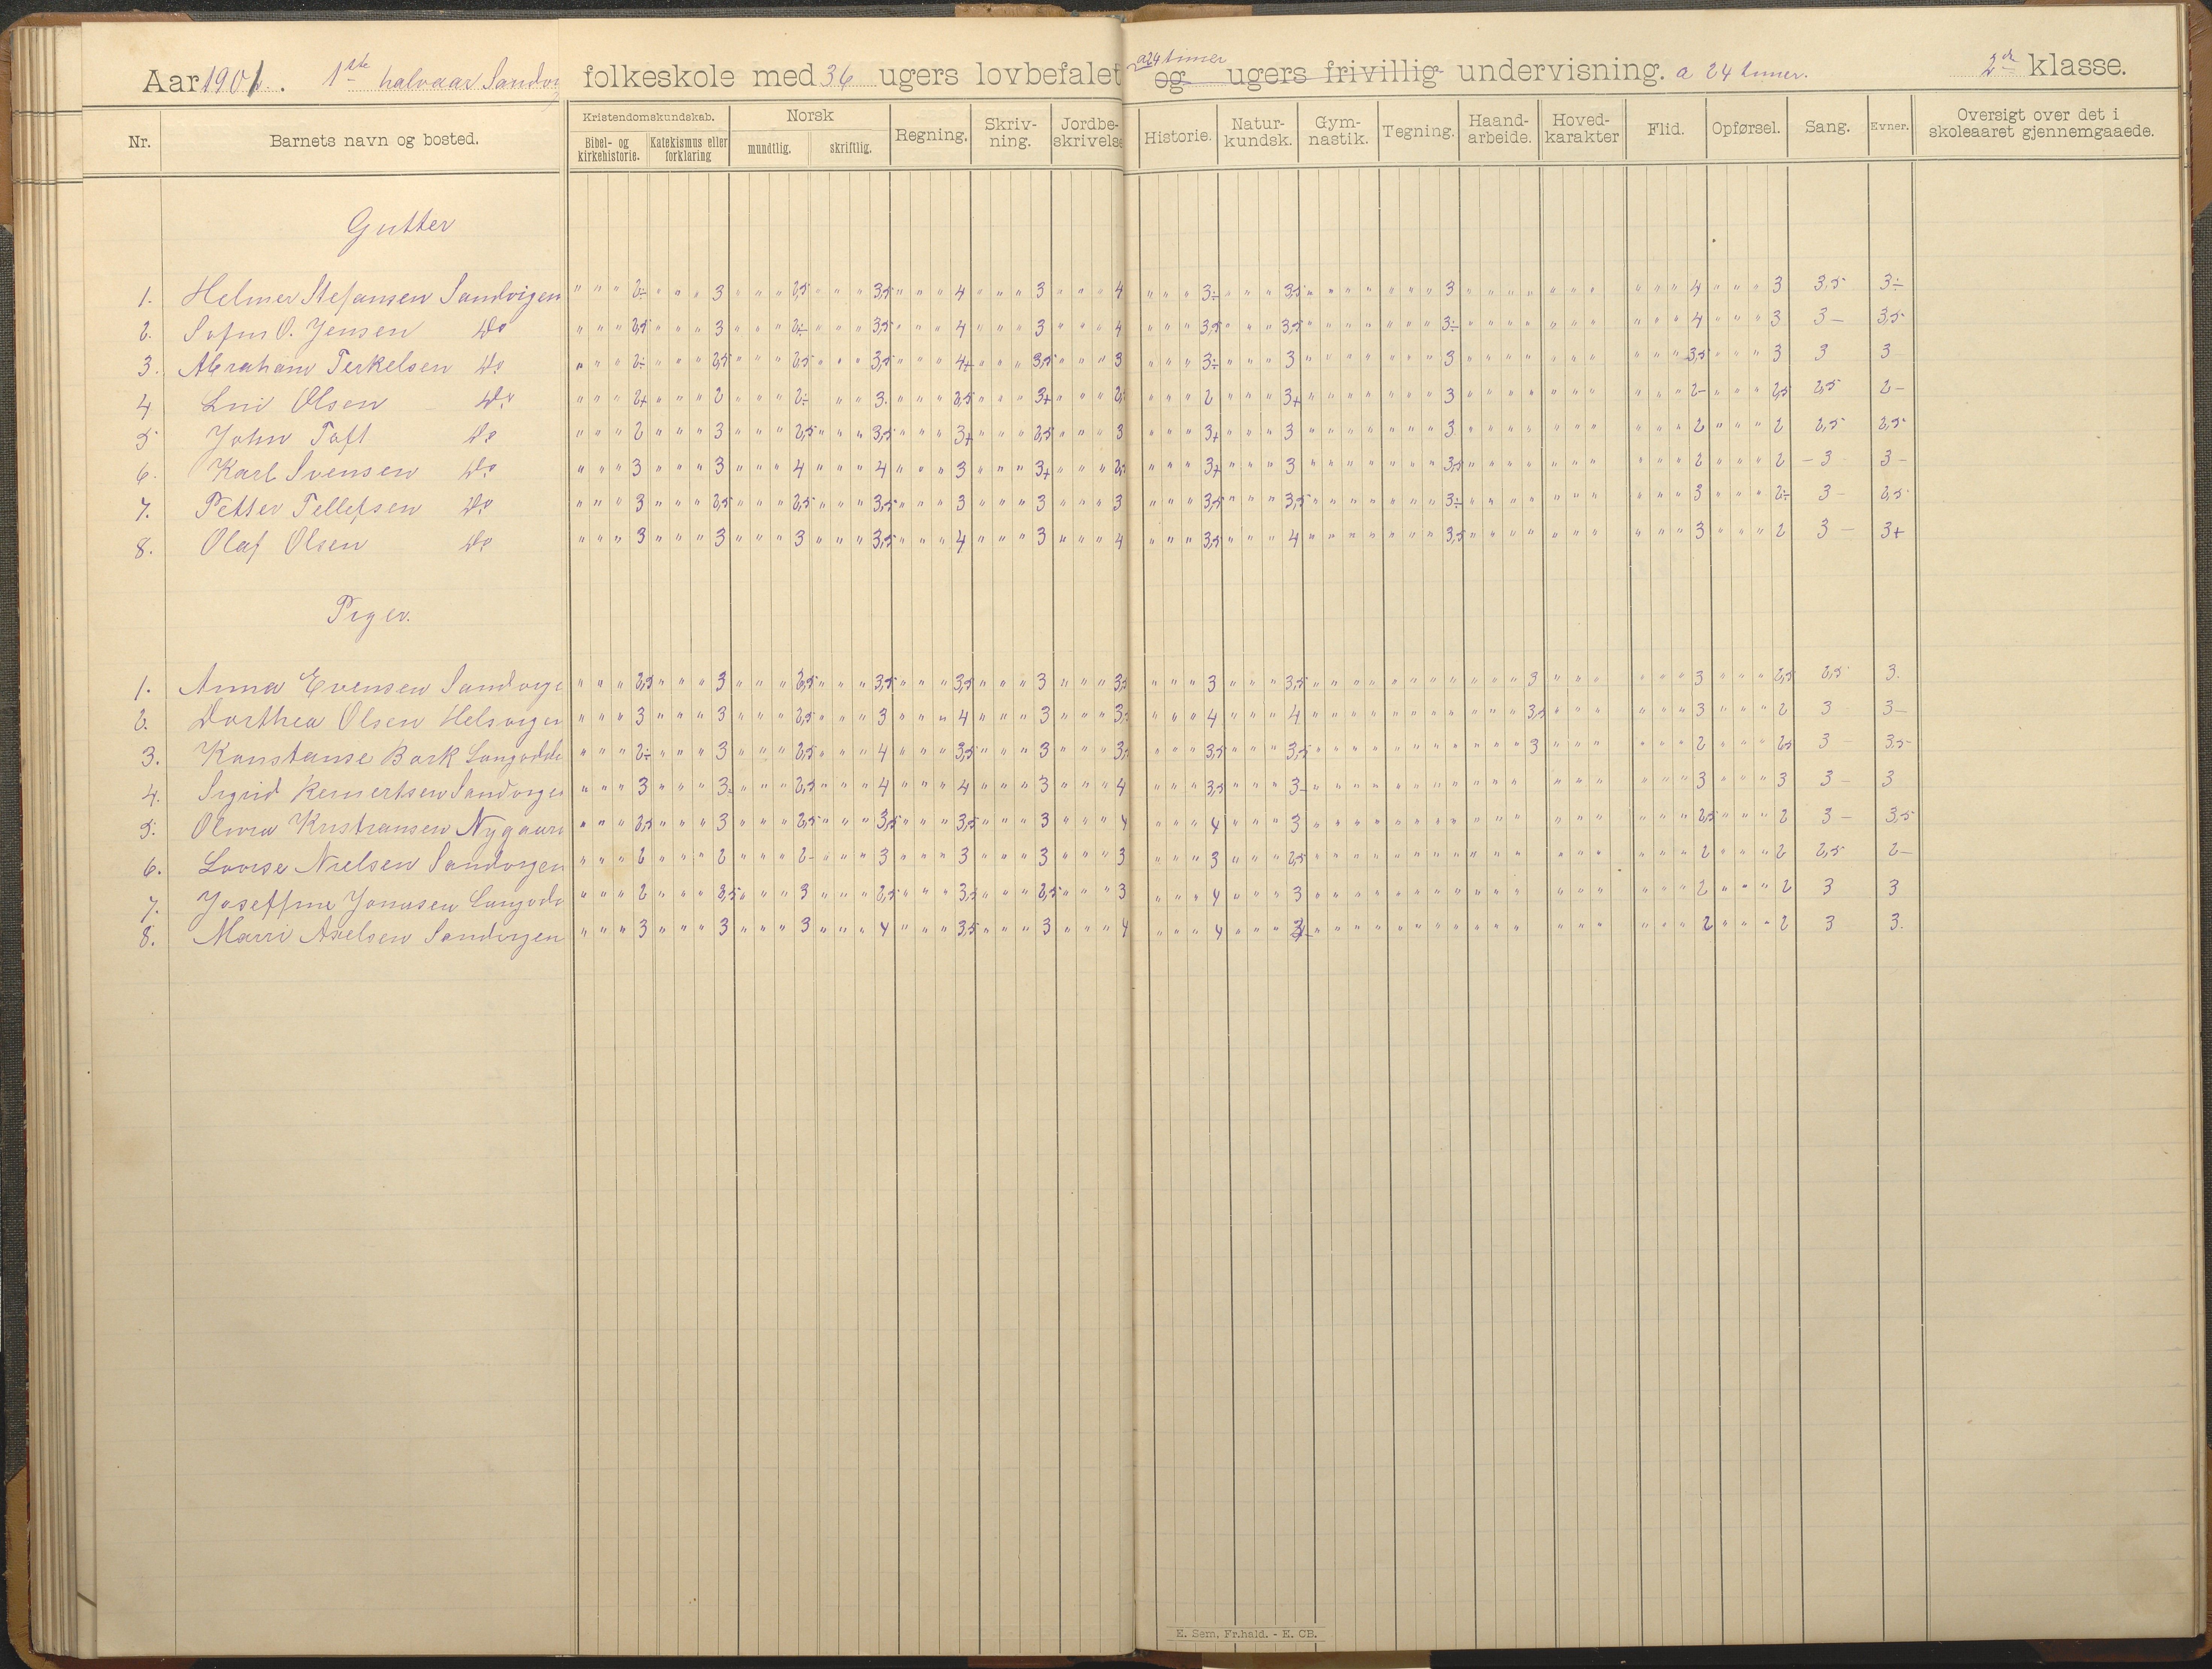 Aar 1901. 1ste halvaar Sandvig folkeskole med 36 ugers lovbefalet a 24 timer og ugers frivillig undervisning. a 24 timer. 2de klasse.
Nr. Barnets navn og bosted. Kristendomskundskab. Bibel- og kirkehistorie. Katekismus eller forklaring Norsk mundtlig. skriftlig. Regning. Skriv-ning. Jordbe-skrivelse Historie. Natur-kundsk. Gym-nastik. Tegning. Haand-arbeide. Hoved-karakter Flid. Opførsel. Sang. Evner. Oversigt over det i skoleaaret gjennemgaaede.
Gutter
1. Helmer Stefansen Sandvigen 2÷ 3 2,5 3,5 4 3 4 3÷ 3,5 3 4 3 3,5 3÷
2. Sofus O. Jensen Do 2,5 3 2÷ 3,5 4 3 4 3,5 3,5 3÷ 4 3 3- 3,5
3. Abraham Terkelsen Do 2÷ 2,5 2,5 3,5 4+ 3,5 3 3÷ 3 3 3,5 3 3 3
4 Olsen Do 2+ 2 2÷ 3. 2,5 3+ 2,5 2 3+ 3 2- 2,5 2,5 2-
5 John Toft Do 2 3 2,5 3,5 3+ 2,5 3 3+ 3 3 2 2 2,5 2,5
6. Karl Svensen Do 3 3 4 4 3 3+ 2,5 3+ 3 3,5 2 2 -3 3-
7. Petter Tellefsen Do 3 2,5 2,5 3,5 3 3 3 3,5 3,5 3÷ 3 2÷ 3- 2,5
8. Olaf Olsen Do 3 3 3 3,5 4 3 4 3,5 4 3,5 3 2 3- 3+
Piger.
1. Anna Evensen Sandvige 2,5 3 2,5 3,5 3,5 3 3,5 3 3,5 3 3 2,5 2,5 3.
2. Dorthea Olsen Helvigen 3 3 2,5 3 4 3 3,5 4 4 3,5 3 2 3 3-
3. Konstanse Bark Langodde 2÷ 3 2,5 4 3,5 3 3,5 3,5 3,5 3 2 2,5 3- 3,5-
4. Sigrid Reinertsen Sandvigen 3 3. 2,5 4 4 3 4 3,5 3- 3 3 3- 3
5. Olivia Kristiansen Nygaard 2,5 3 2,5 3,5 3,5 3 4 4 3 2,5 2 3- 3,5
6. Lovise Nielsen Sandvigen 2 2 2- 3 3 3 3 3 2,5 2 2 2,5 2-
7. Joseffine Jonasen Langodd 2 3,5 3 2,5 3,5 2,5 3 4 3 2 2 3 3
8. Marri Axelsen Sandvigen 3 3 3 4 3,5 3 4 4 2 2 3 3.
E. Sem, Fr.hald. - E. CB.